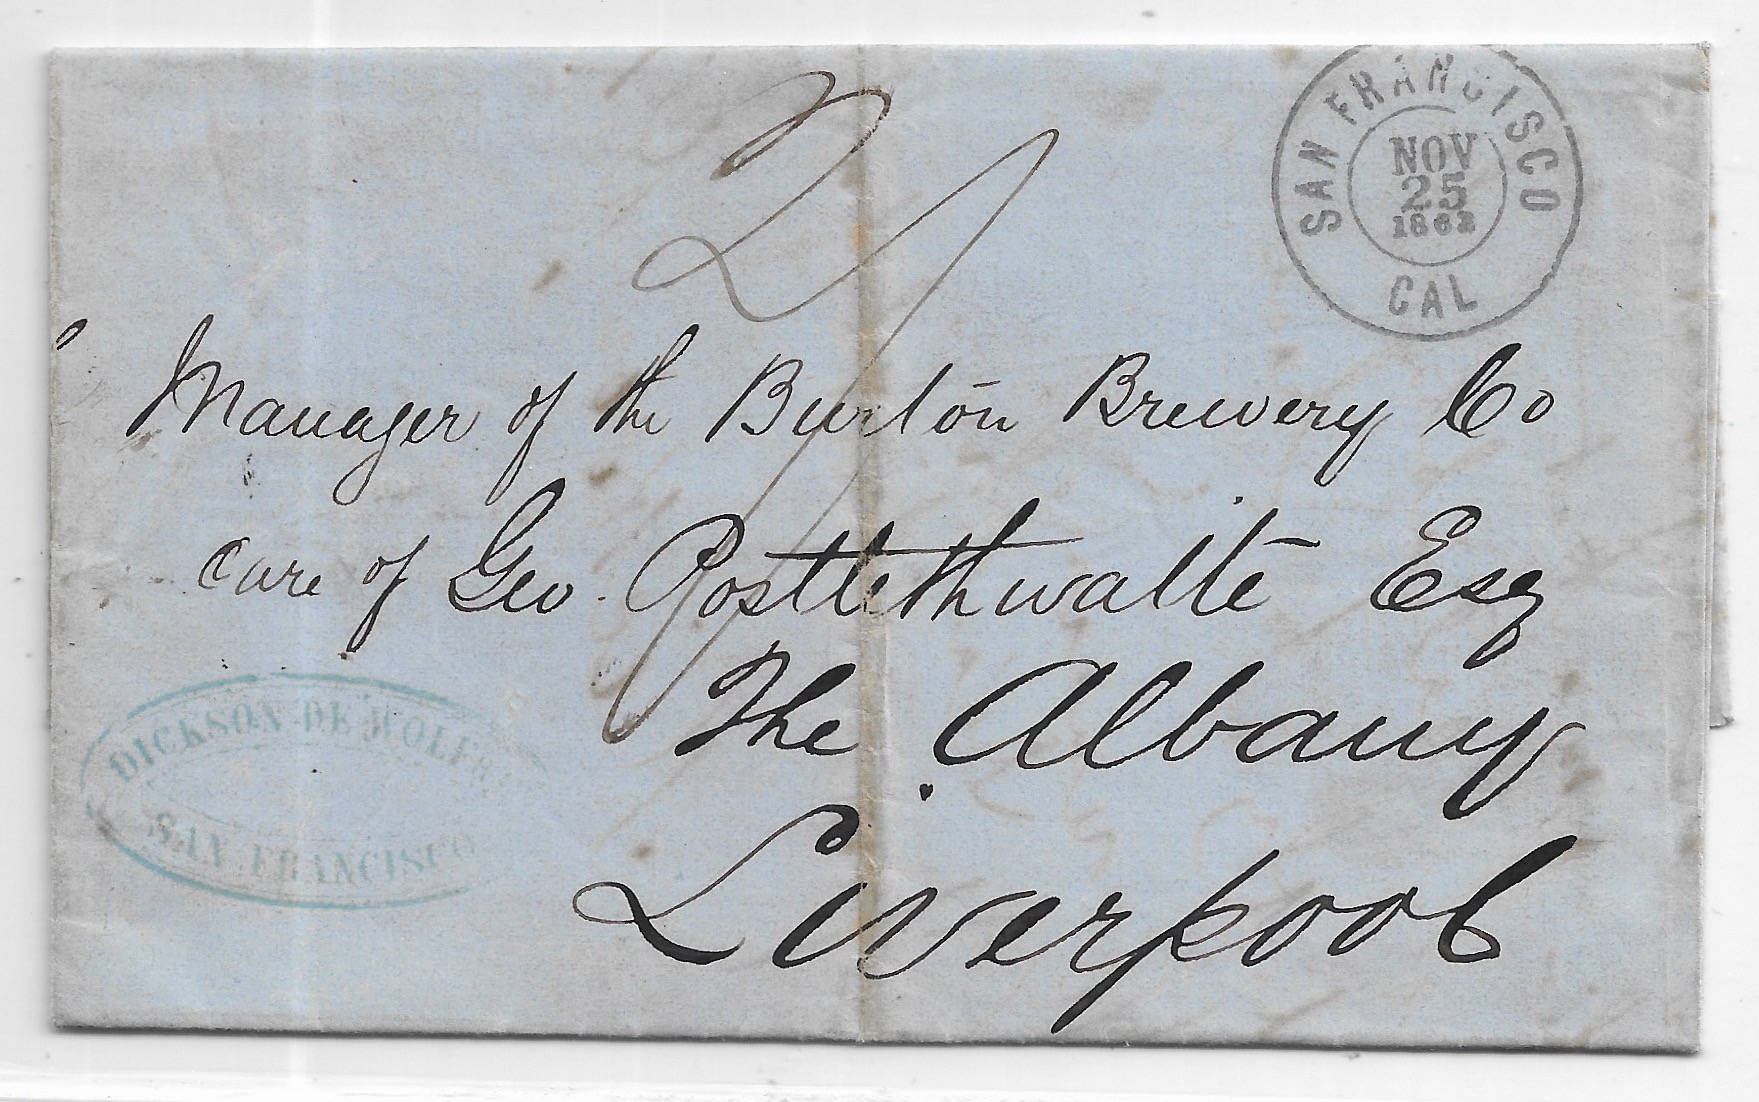 2/
SAN FRANCISCO
NOV
25
1862
CAL
Manager of the Burton Brewery Co
care of Geo. Postlethwaite Esq
The Albany
Liverpool
DICKSON DE WOLF &
SAN FRANCISCO